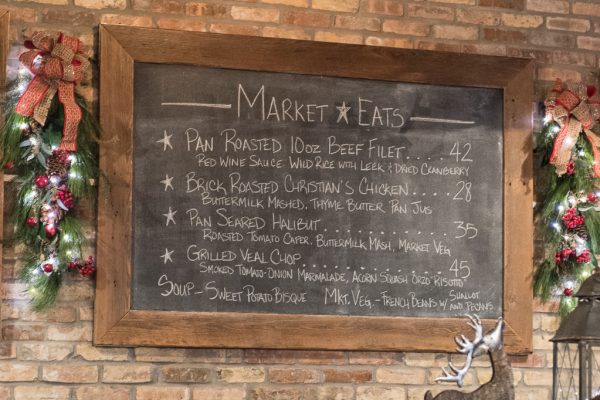 MARKET ★ EATS
★ PAN ROASTED 10OZ BEEF FILET.... 42
RED WINE SAUCE, WILD RICE WITH LEEK & DRIED CRANBERRY
★ BRICK ROASTED CHRISTIAN'S CHICKEN.... 28
BUTTERMILK MASHED, THYME BUTTER PAN JUS
★ PAN SEARED HALIBUT.............. 35
ROASTED TOMATO CAPER, BUTTERMILK MASH, MARKET VEG
★ GRILLED VEAL CHOP.............. 45
SMOKED TOMATO-ONION MARMALADE, ACORN SQUASH ORZO RISOTTO
SOUP - SWEET POTATO BISQUE MKT. VEG. - FRENCH BEANS W/ SHALLOT AND PECANS